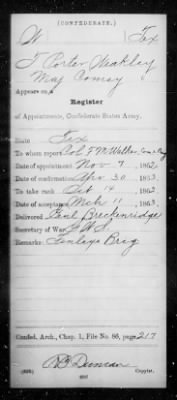 (CONFEDERATE.)
W Tex
T Porter Weakley
Maj Comsy "
Appears on a
Register
of Appointments, Confederate States Army.
State Tex
To whom report Col F M Walker
Date of appointment Nov 7, 1862
Date of confirmation Apr 30, 1863
To take rank Oct 14, 1862
Date of acceptance Mch 11, 1863
Delivered Genl Breckenridge
Secretary of War J A S
Remarks: Brig
Confed. Arch., Chap. 1, File No. 86, page 217
R B Duncan
Copyist.